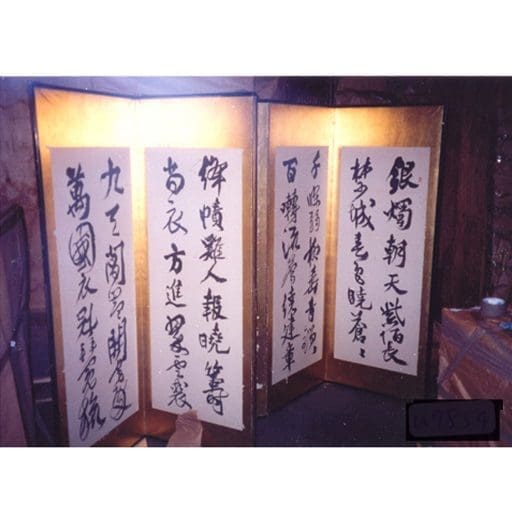 銀燭朝天紫陌長
禁城春色曉蒼々
千條弱柳垂青瑣
百囀流鶯繞建章
絳幘雞人報曉籌
尚衣方進翠雲裘
九天閶闔開宮殿
萬國衣冠拜冕旒